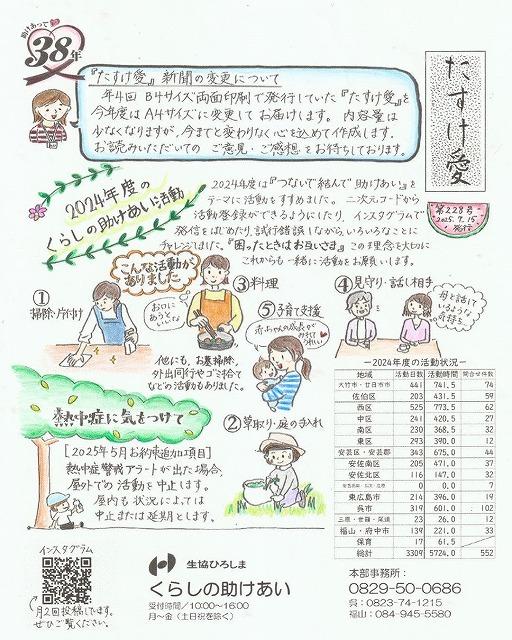 助けあって
38年
『たすけ愛』新聞の変更について
年4回 B4サイズ両面印刷で発行していた『たすけ愛』を
今年度はA4サイズに変更してお届けします。内容量は
少なくなりますが、今までと変わりなく心を込めて作成します。
お読みいただいての ご意見・ご感想 をお待ちしております。
たすけ愛
第228号
2025.7.15
発行
2024年度の
くらしの助けあい活動
2024年度は『つないで結んで 助けあい』を
テーマに活動をすすめました。二次元コードから
活動登録ができるようにしたり、インスタグラムで
発信をはじめたり、試行錯誤しながら、いろいろなことに
チャレンジしました。『困ったときはお互いさま』この理念を大切に
これからも一緒に活動をお願いします。
こんな活動が
ありました
①
掃除・片付け
お口に
あうと
いいな
③料理
⑤子育て支援
赤ちゃんの成長が
みれて
うれしい
④見守り・話し相手
母と話して
いるような
気持ち
他にも、お墓掃除、
外出同行やゴミ捨て
などの活動もありました。
②草取り・庭の手入れ
熱中症に気をつけて
[2025年5月お約束追加項目]
熱中症警戒アラートが出た場合、
屋外での活動を中止します。
屋内も状況によっては
中止または延期とします。
ー2024年度の活動状況ー
地域 活動日数 活動時間 問合せ件数
大竹市・廿日市市 441 741.5 74
佐伯区 203 431.5 59
西区 525 773.5 62
中区 241 420.5 27
南区 230 368.5 32
東区 293 390.0 12
安芸区・安芸郡 343 675.0 44
安佐南区 205 471.0 37
安佐北区 116 147.0 32
0 0.0 7
東広島市 214 396.0 19
呉市 319 601.0 102
三原・世羅・尾道 23 26.0 12
福山・府中市 139 221.0 33
保育 17 61.5
総計 3309 5724.0 552
インスタグラム
月2回投稿しています。
ぜひご覧ください。
生協ひろしま
くらしの助けあい
受付時間／10:00～16:00
月～金（土日祝を除く）
本部事務所：
0829-50-0686
呉：0823-74-1215
福山：084-945-5580